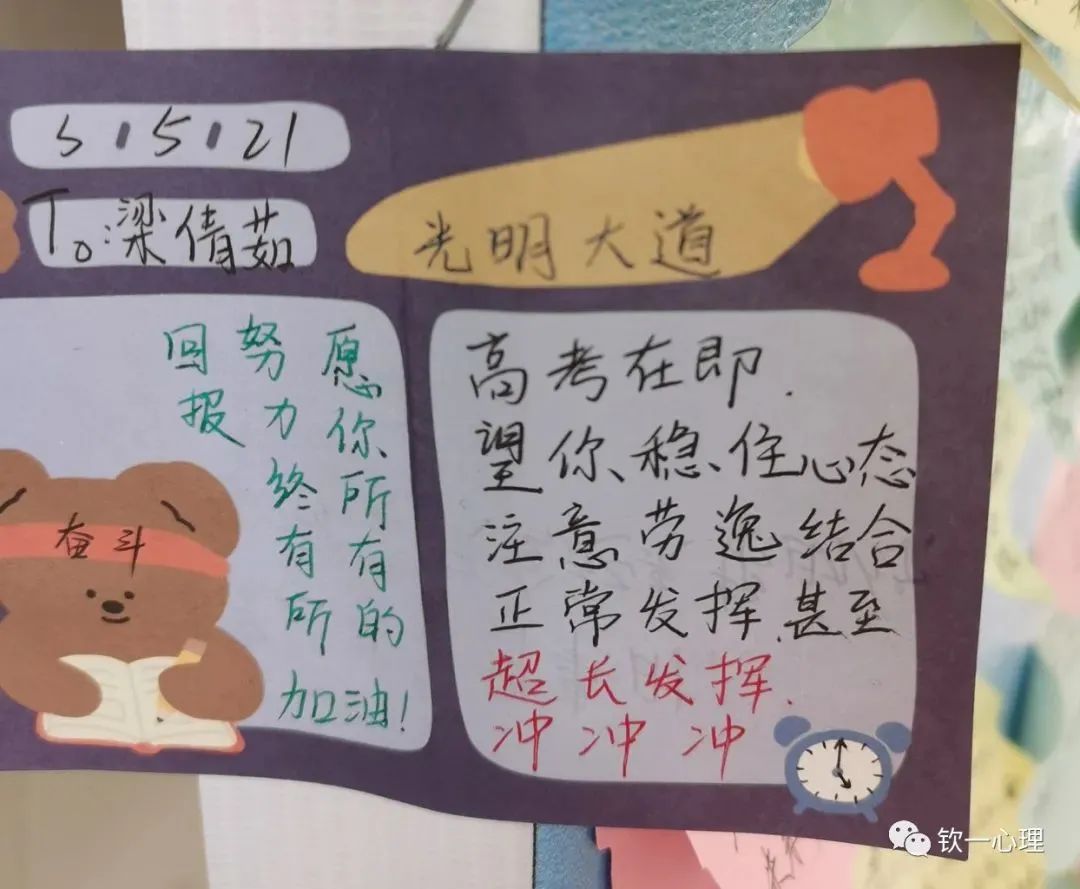 5/5/21
To:梁倩茹
光明大道
愿你所有的
努力终有所
回报
加油!
奋斗
高考在即.
望你稳住心态
注意劳逸结合
正常发挥甚至
超长发挥.
冲冲冲
钦一心理